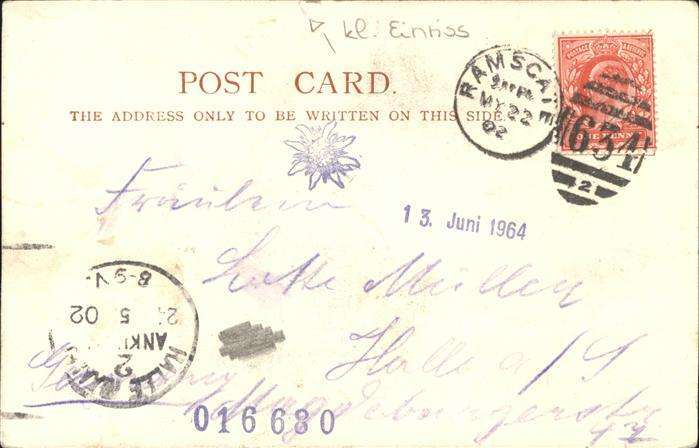 kl. Einriss
POST CARD.
THE ADDRESS ONLY TO BE WRITTEN ON THIS SIDE.
RAMSGATE
MY 22
02
POSTAGE REVENUE
ONE PENNY
654
2
Fräulein
13. Juni 1964
Lotte Müller
Halle a/S
Germany
Magdeburgerstr
8-9V.
5 02
ANK
2
HALLE
016630